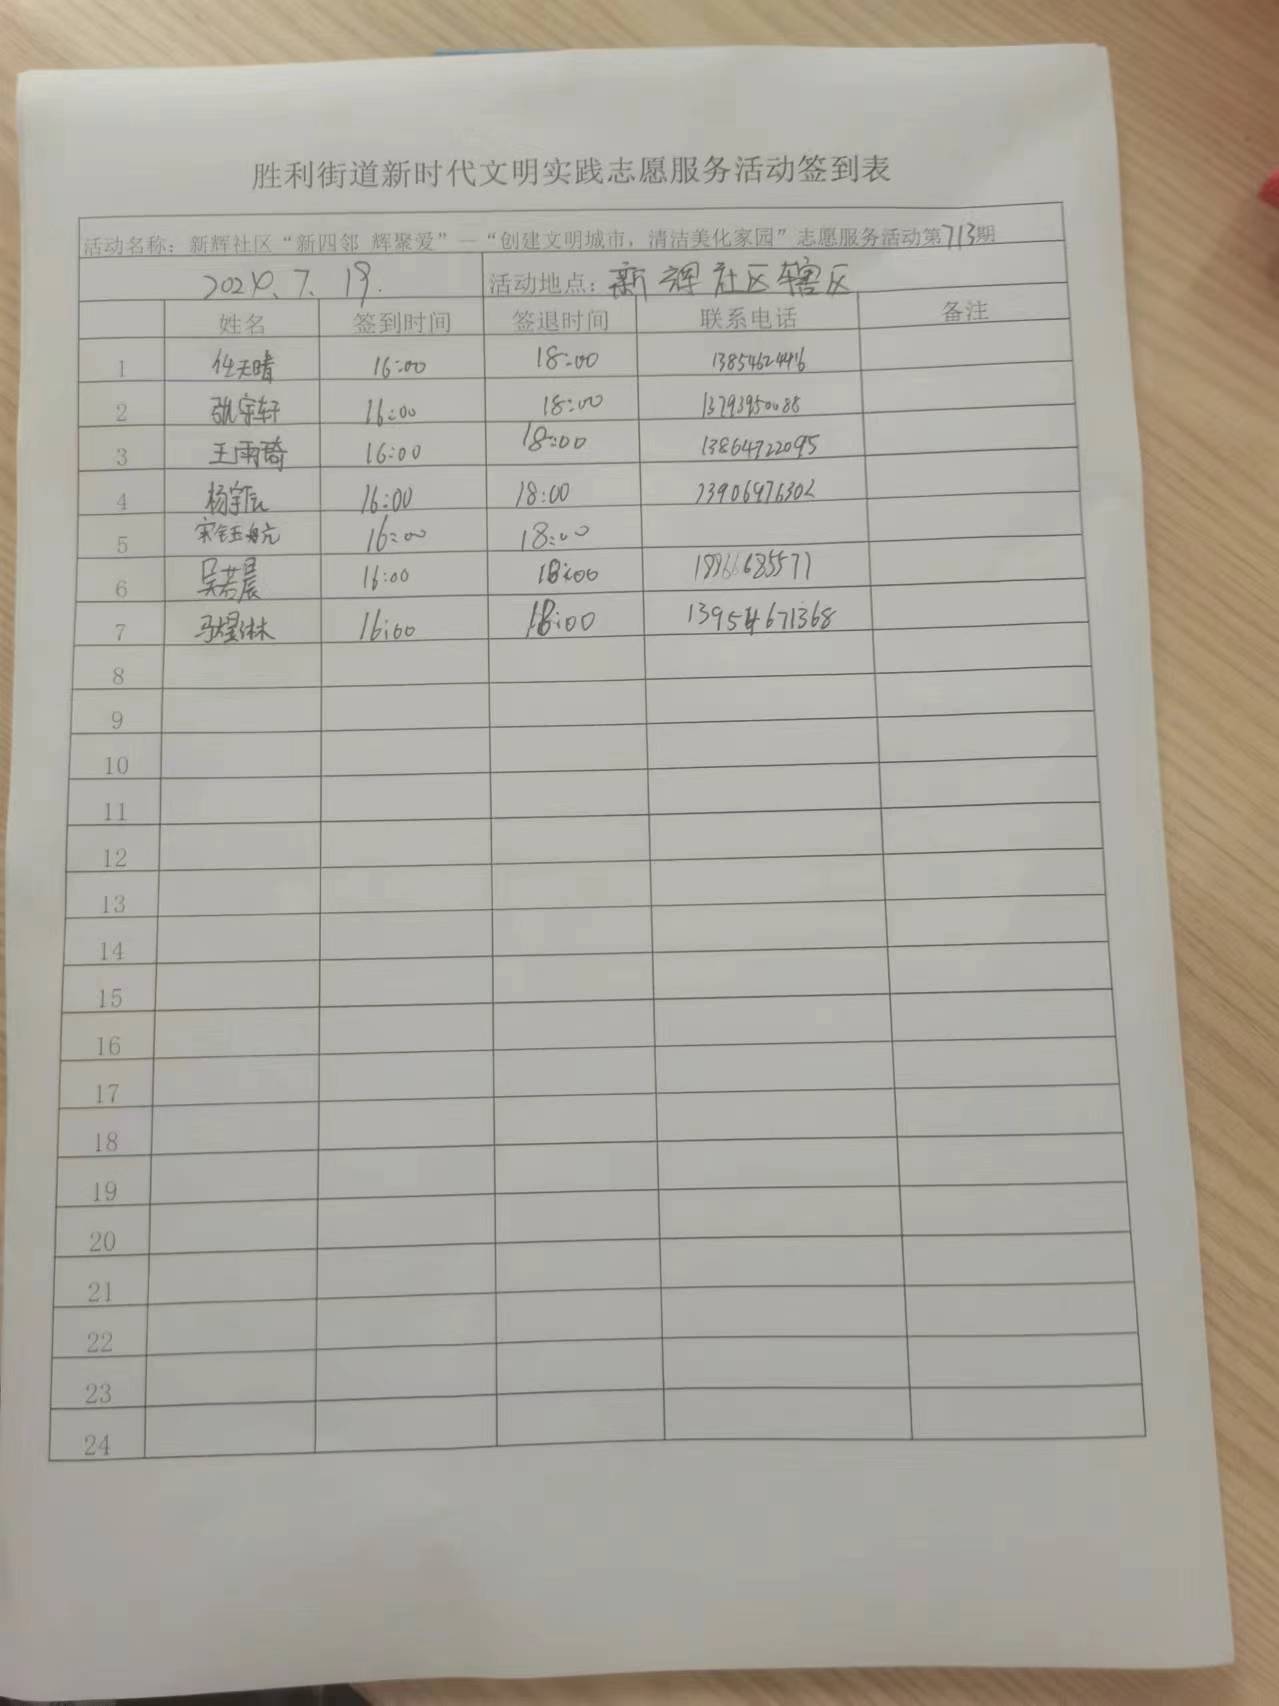 胜利街道新时代文明实践志愿服务活动签到表
活动名称：新辉社区“新四邻 辉聚爱”—“创建文明城市，清洁美化家园”志愿服务活动第713期
2024.7.19. 活动地点：新辉社区辖区
姓名 签到时间 签退时间 联系电话 备注
1 任天晴 16:00 18:00 13854624416
2 张宇轩 16:00 18:00 13793950088
3 王雨琦 16:00 18:00 13864722095
4 杨宇辰 16:00 18:00 13906476302
5 宋钰航 16:00 18:00
6 吴若晨 16:00 18:00 18966685577
7 马煜淋 16:00 18:00 13954671368
8
9
10
11
12
13
14
15
16
17
18
19
20
21
22
23
24